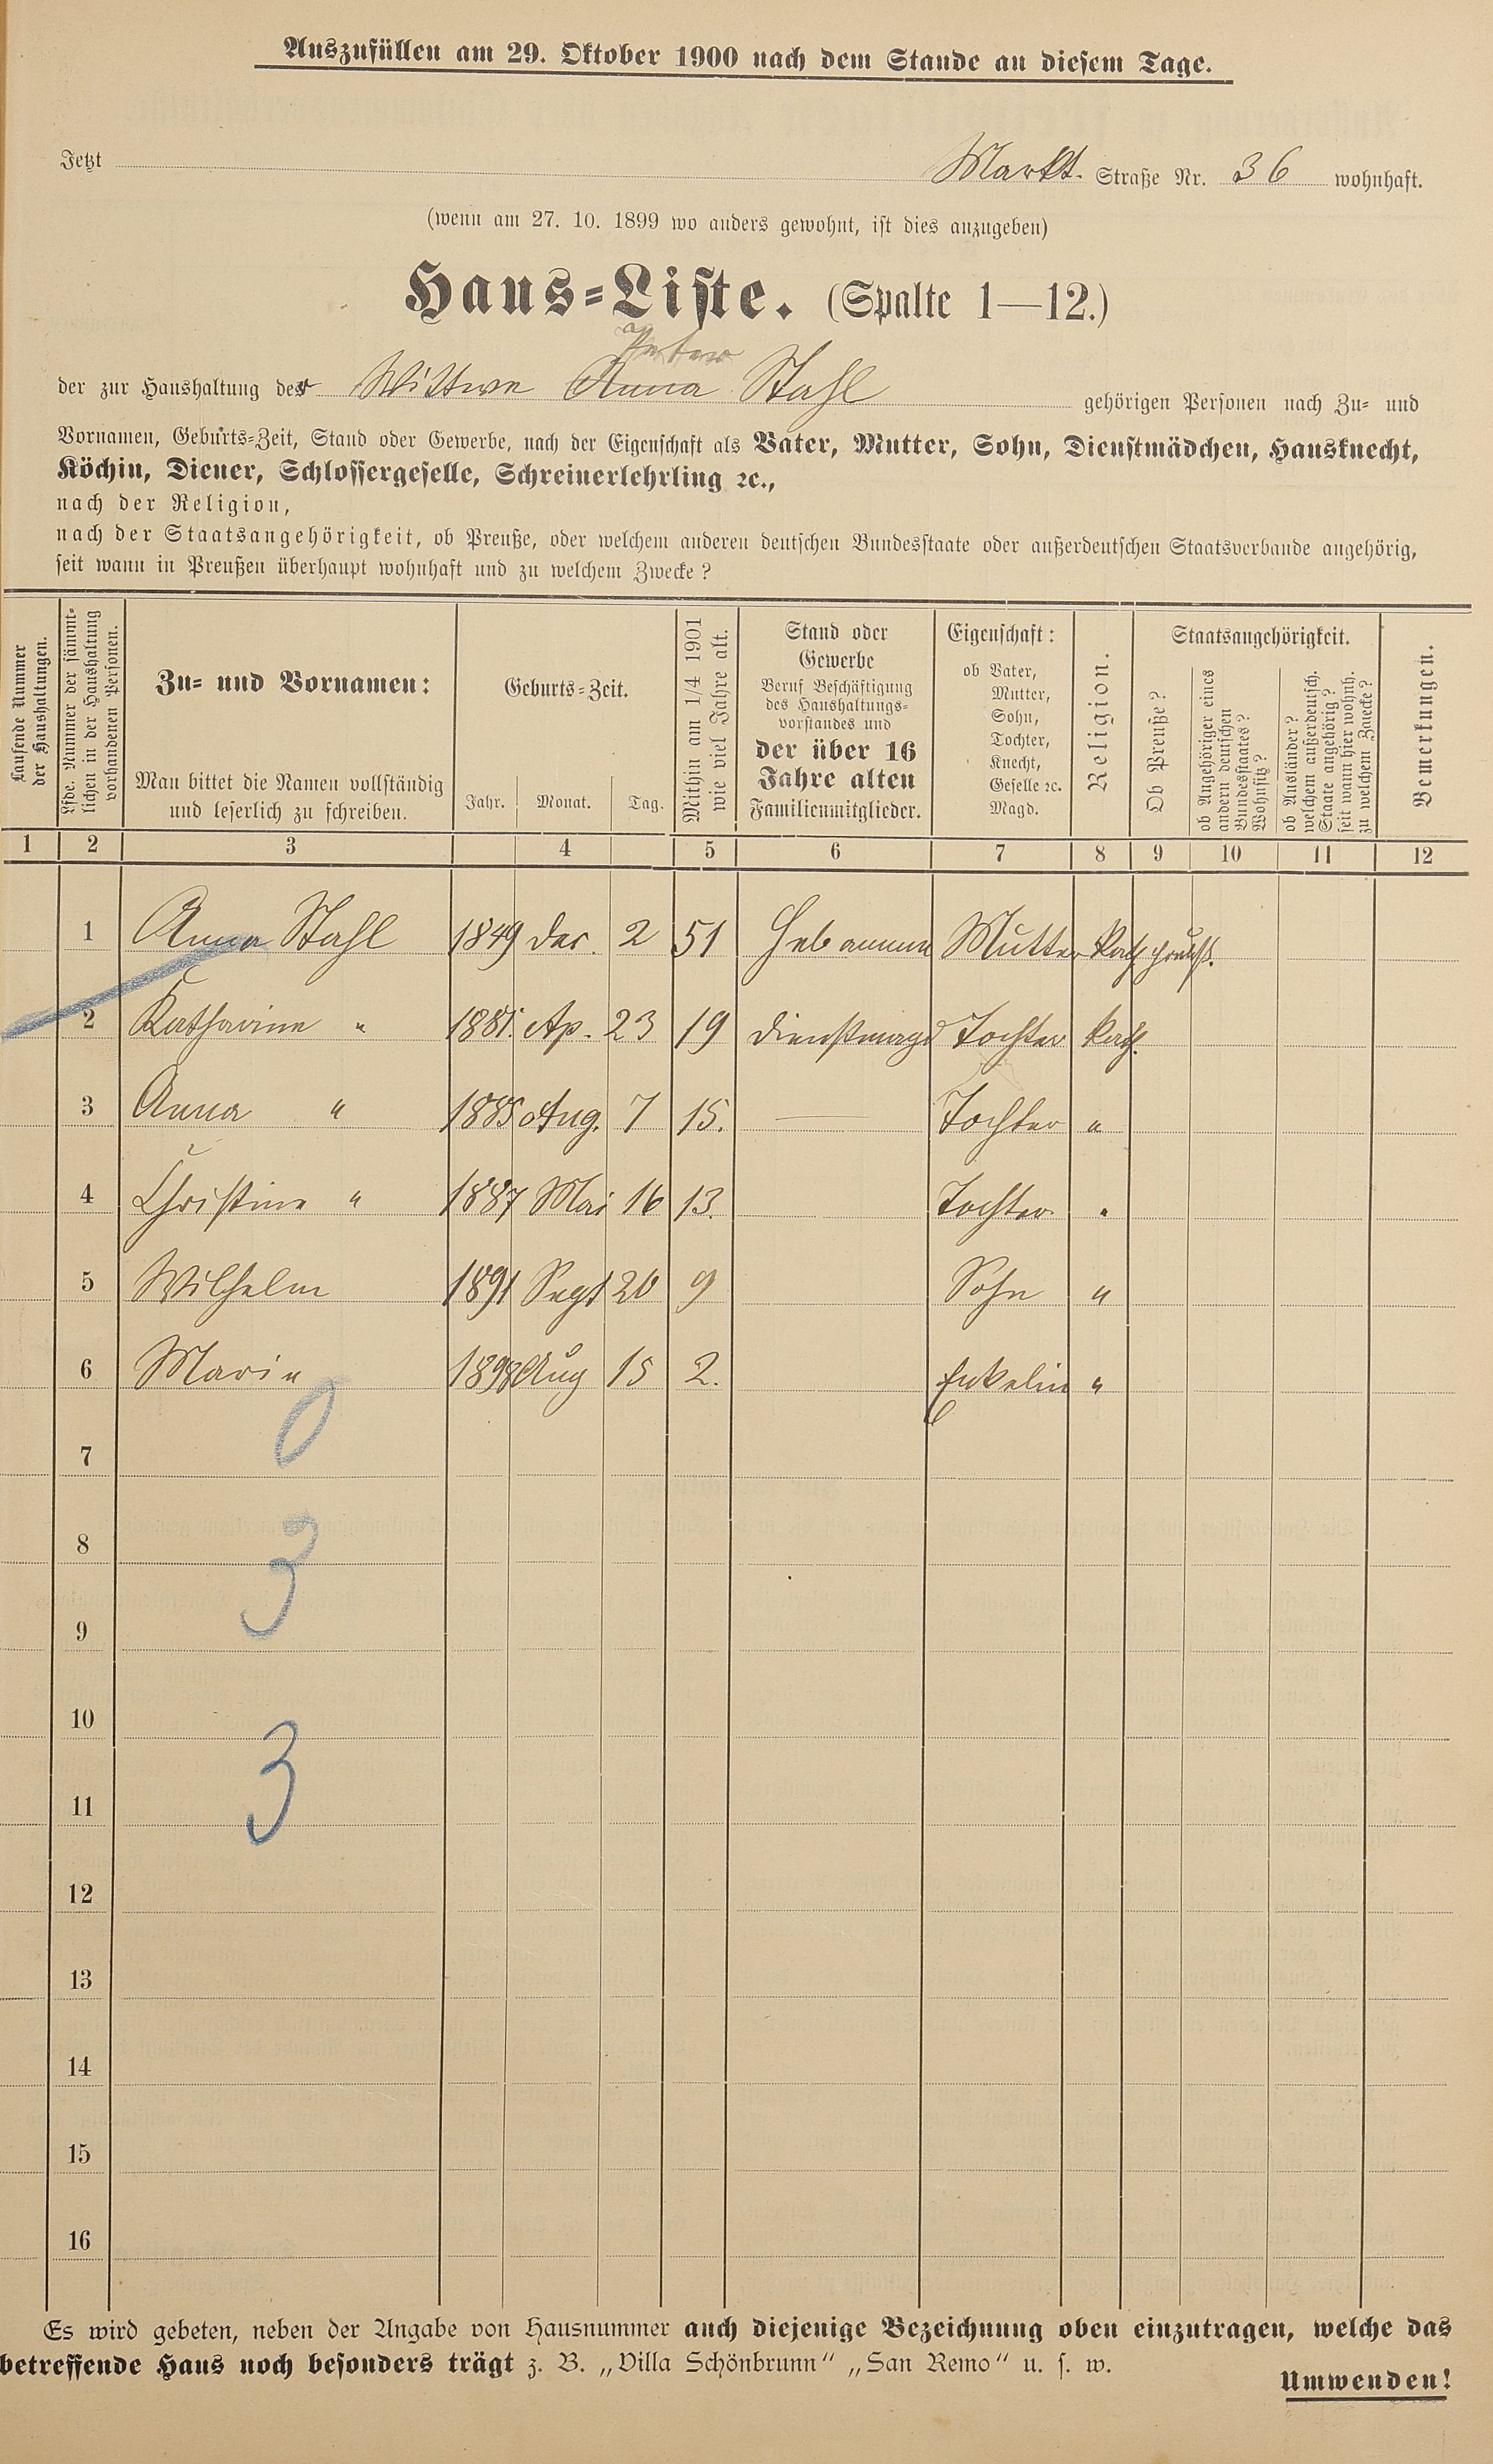 Auszufüllen am 29. Oktober 1900 nach dem Stande an diesem Tage.
Jetzt Markt. Straße Nr. 36 wohnhaft.
(wenn am 27. 10. 1899 wo anders gewohnt, ist dies anzugeben)
Haus-Liste. (Spalte 1—12.)
Peter
der zur Haushaltung der Wittwe Anna Stahl gehörigen Personen nach Zu- und
Vornamen, Geburts-Zeit, Stand oder Gewerbe, nach der Eigenschaft als Vater, Mutter, Sohn, Dienstmädchen, Hausknecht,
Köchin, Diener, Schlossergeselle, Schreinerlehrling ꝛc.,
nach der Religion,
nach der Staatsangehörigkeit, ob Preuße, oder welchem anderen deutschen Bundesstaate oder außerdeutschen Staatsverbande angehörig,
seit wann in Preußen überhaupt wohnhaft und zu welchem Zwecke?
Laufende Nummer
der Haushaltungen.
Lfde. Nummer der sämmt-
lichen in der Haushaltung
vorhandenen Personen.
Zu- und Vornamen:
Man bittet die Namen vollständig
und leserlich zu schreiben.
Geburts-Zeit.
Jahr. Monat. Tag.
Mithin am 1/4 1901
wie viel Jahre alt.
Stand oder
Gewerbe
Beruf Beschäftigung
des Haushaltungs-
vorstandes und
der über 16
Jahre alten
Familienmitglieder.
Eigenschaft:
ob Vater,
Mutter,
Sohn,
Tochter,
Knecht,
Geselle ꝛc.
Magd.
Religion.
Staatsangehörigkeit.
Ob Preuße?
ob Angehöriger eines
andern deutschen
Bundesstaates?
Wohnsitz?
ob Ausländer?
welchem außerdeutsch.
Staate angehörig?
seit wann hier wohnh.
zu welchem Zwecke?
Bemerkungen.
1 2 3 4 5 6 7 8 9 10 11 12
1 Anna Stahl 1849 Dec. 2 51 Hebamme Mutter kath preuß.
2 Katharine " 1881. Ap. 23 19 Dienstmagd Tochter kath.
3 Anna " 1885 Aug. 7 15. — Tochter "
4 Christine " 1887 Mai 16 13. Tochter "
5 Wilhelm 1891 Sept 20 9 Sohn "
6 Marie 1898 Aug 15 2. Enkelin "
0
7
3
8
9
10
3
11
12
13
14
15
16
Es wird gebeten, neben der Angabe von Hausnummer auch diejenige Bezeichnung oben einzutragen, welche das
betreffende Haus noch besonders trägt z. B. „Villa Schönbrunn" „San Remo" u. s. w.
Umwenden!